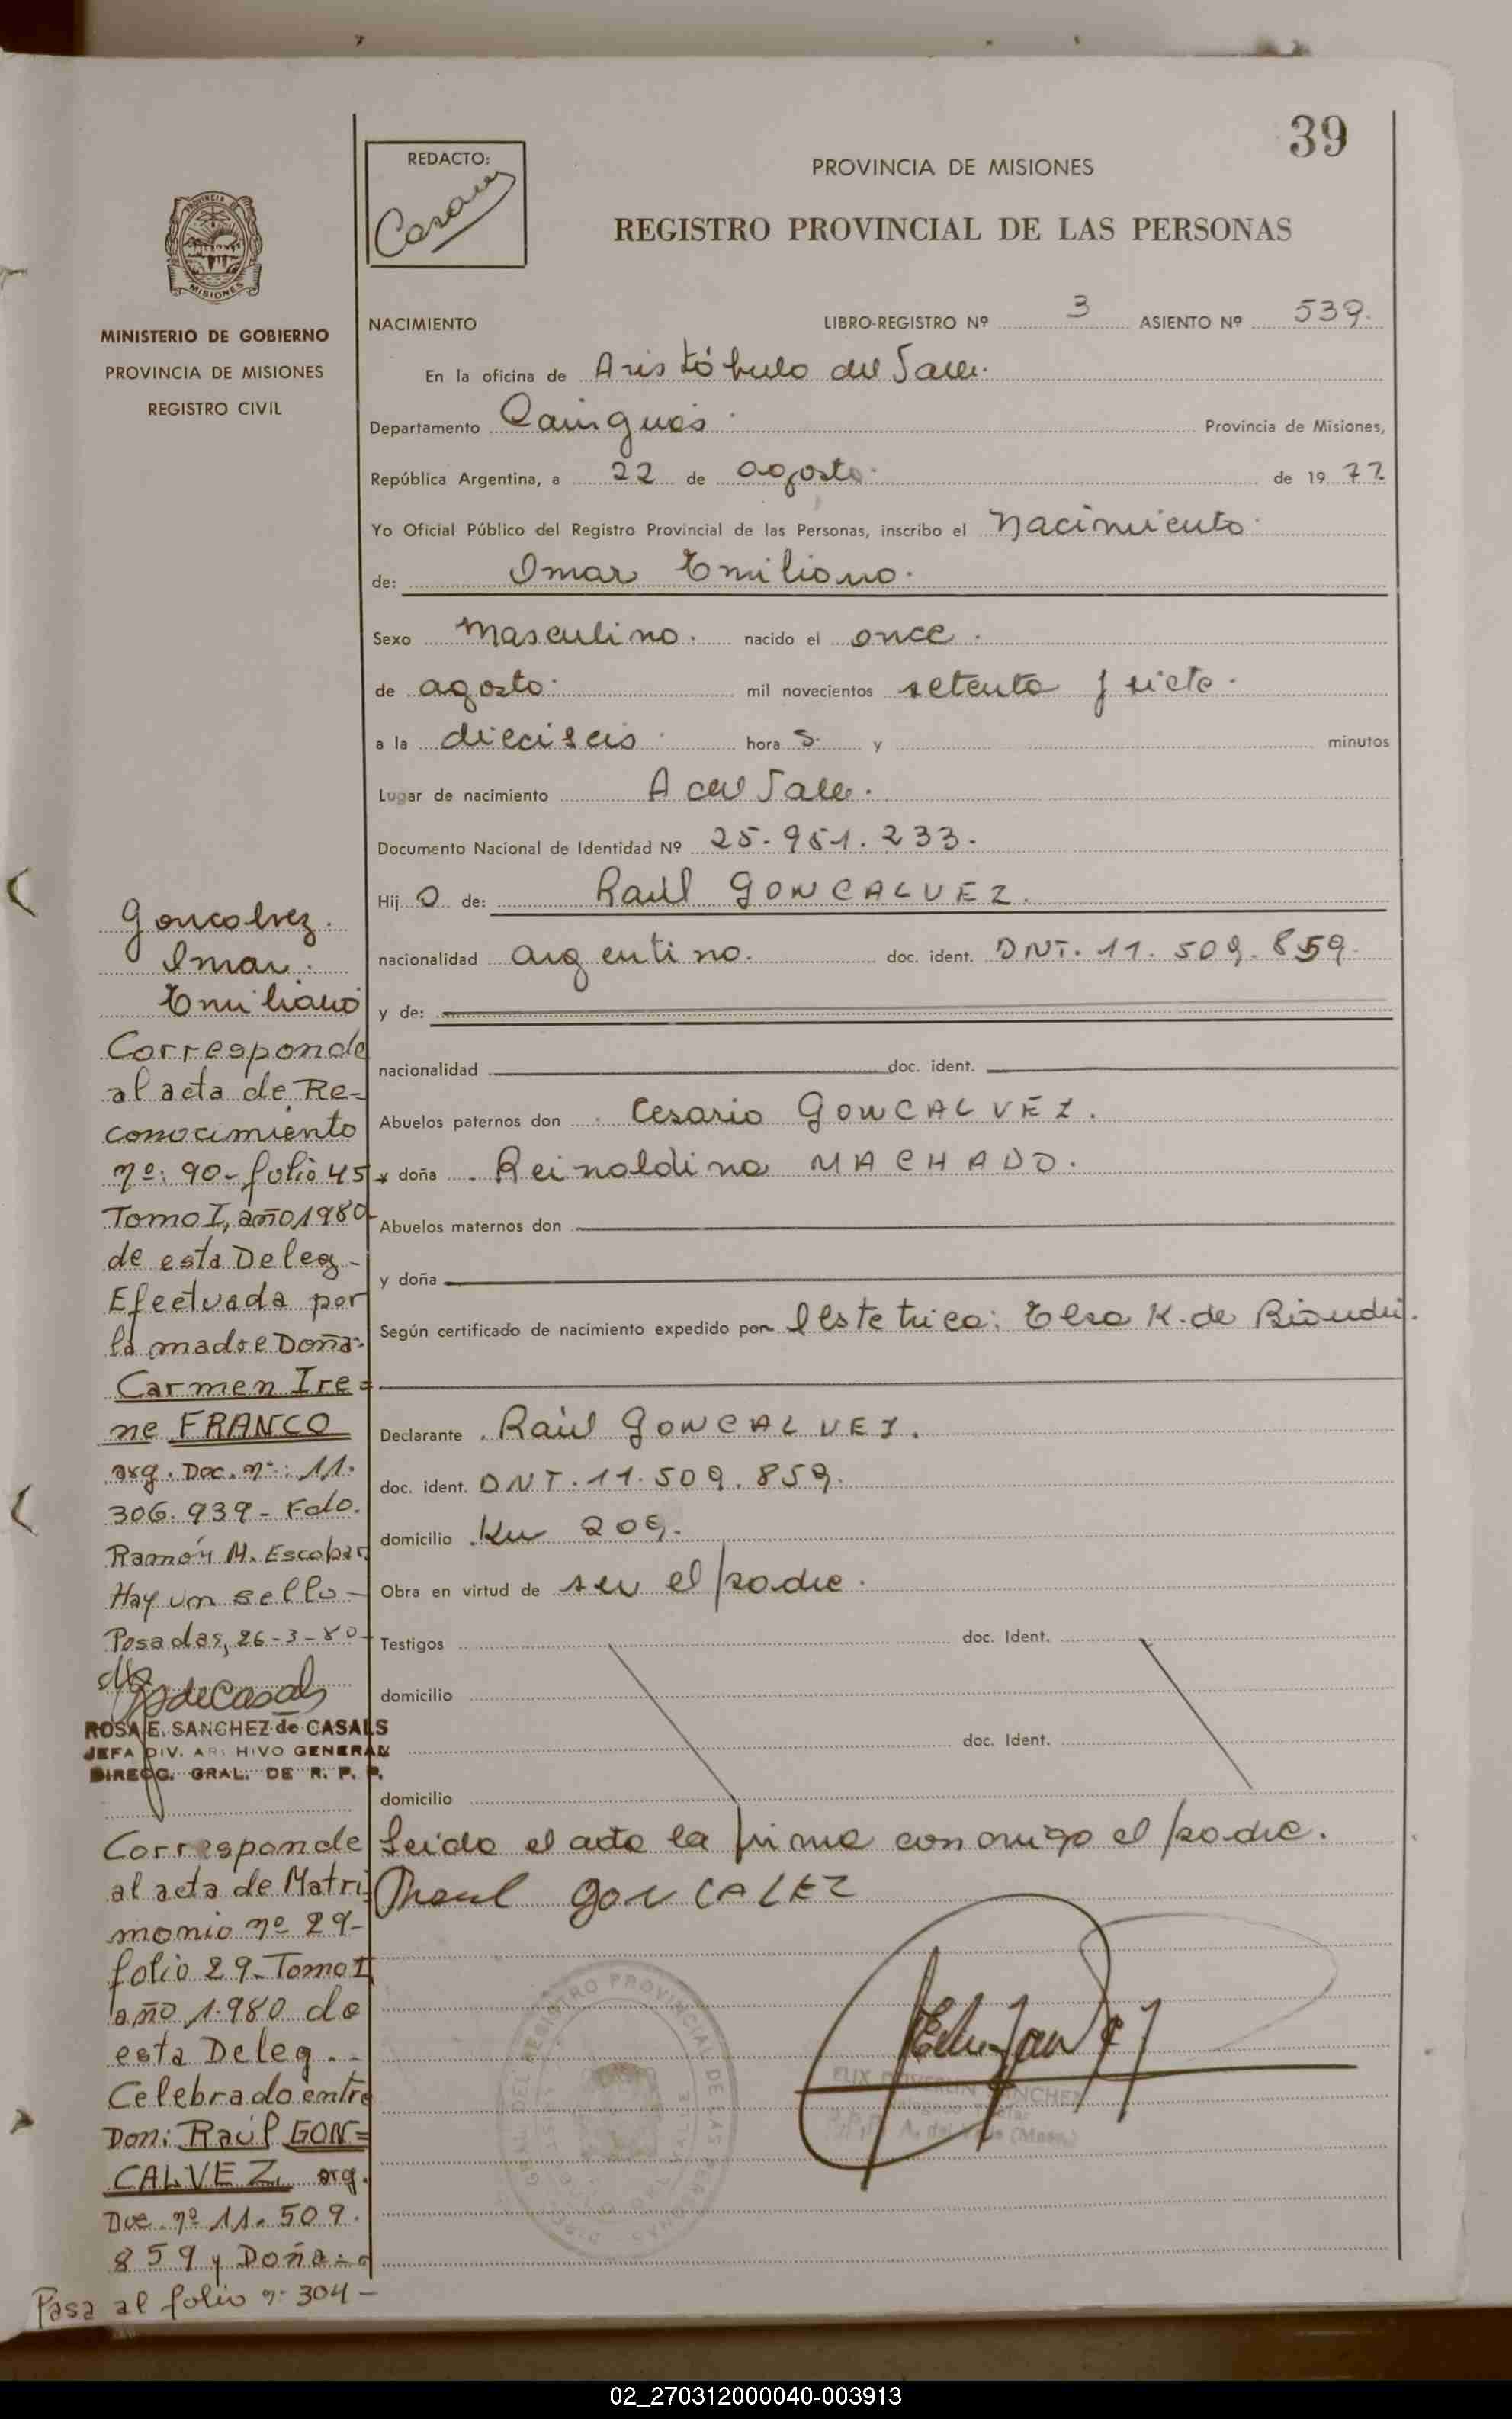 39
REDACTO:
PROVINCIA DE MISIONES
REGISTRO PROVINCIAL DE LAS PERSONAS
PROVINCIA DE
MISIONES
MINISTERIO DE GOBIERNO
PROVINCIA DE MISIONES
REGISTRO CIVIL
NACIMIENTO LIBRO-REGISTRO Nº 3 ASIENTO Nº 539.
En la oficina de Aristóbulo del Valle.
Departamento Cainguás. Provincia de Misiones,
República Argentina, a 22 de agosto. de 19 77
Yo Oficial Público del Registro Provincial de las Personas, inscribo el Nacimiento.
de: Omar Emiliano.
Sexo masculino. nacido el once.
de agosto. mil novecientos setenta y siete.
a la dieciseis. hora s. y minutos
Lugar de nacimiento A del Valle.
Documento Nacional de Identidad Nº 25.951.233.
Hij o de: Raúl GONCALVEZ.
nacionalidad argentino. doc. ident. DNT. 11.509.859.
y de:
nacionalidad doc. ident.
Abuelos paternos don Cesario GONCALVEZ.
y doña Reinaldina MACHADO.
Abuelos maternos don
y doña
Según certificado de nacimiento expedido por Elsa K. de
Declarante Raúl GONCALVEZ.
doc. ident. DNT. 11.509.859.
domicilio Km 209.
Obra en virtud de ser el padre.
Testigos doc. Ident.
domicilio
doc. Ident.
domicilio
Leida el acta la firma conmigo el padre.
Raul GONCALEZ
Goncalvez.
Omar.
Emiliano
Corresponde
al acta de Re-
conocimiento
nº: 90-folio 45
Tomo I, año 1980
de esta Deleg-
Efectuada por
la madre Doña:
Carmen Ire=
ne FRANCO
arg. Doc. nº: 11.
306.939- Fdo.
Ramón M. Escobar
Hay un sello-
Posadas, 26-3-80-
ROSA E. SANCHEZ de CASALS
JEFA DIV. ARCHIVO GENERAL
DIRECC. GRAL. DE R. P. P.
Corresponde
al acta de Matri
monio nº 29-
folio 29-Tomo I
año 1.980 de
esta Deleg.-
Celebrado entre
Don: Raúl GON=
CALVEZ arg.
Doc. nº 11.509.
859 y Doña:-
Pasa al folio nº 304-
02_270312000040-003913